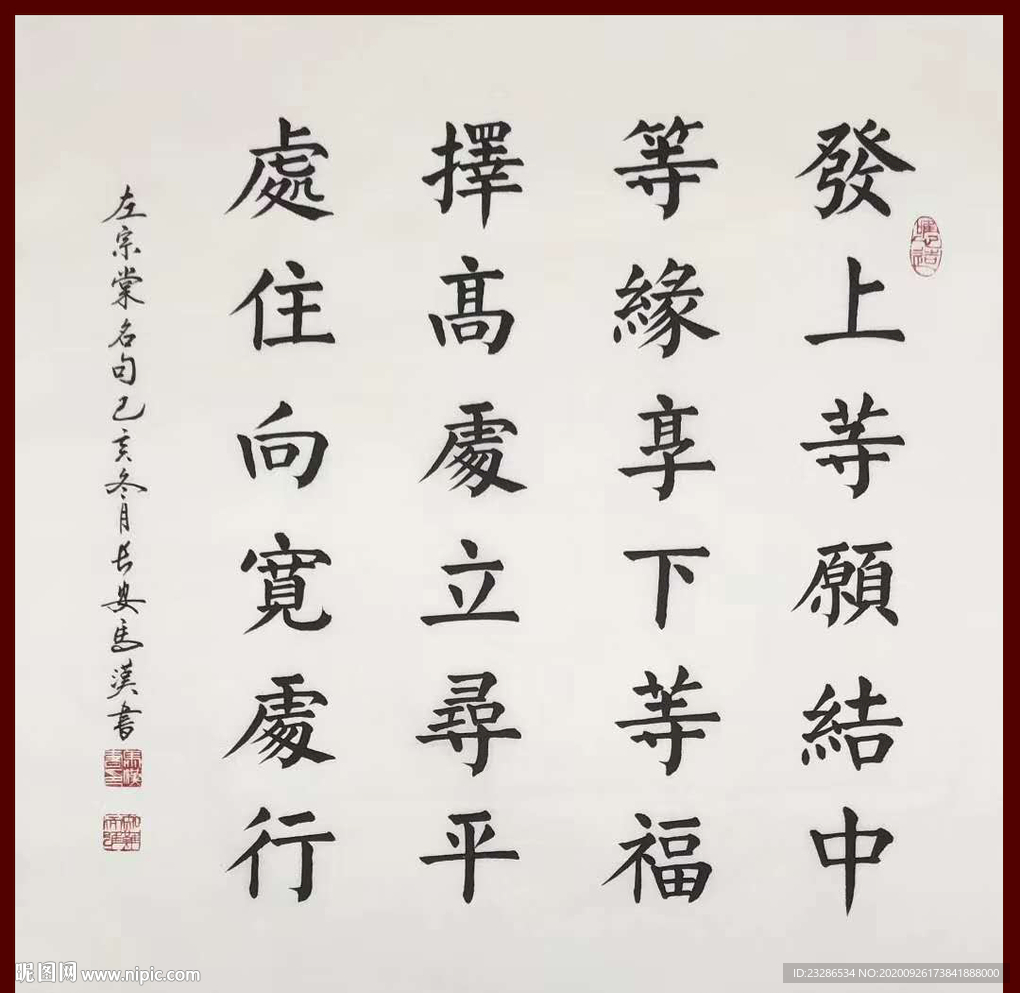 發上等願結中
等緣享下等福
擇高處立尋平
處住向寬處行
左宗棠名句己亥冬月长安馬漢書
昵图网 www.nipic.com
ID:23286534 NO:20200926173841888000